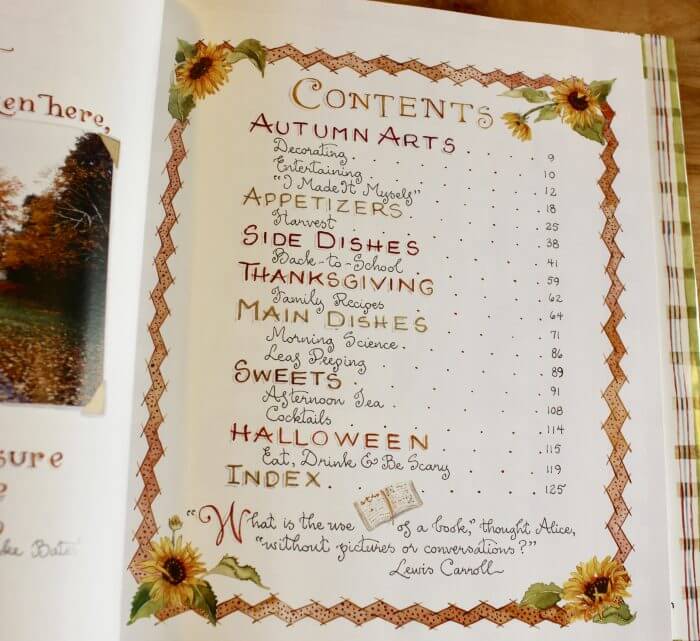 here,
CONTENTS
AUTUMN ARTS 9
Decorating 10
Entertaining 12
"I Made It Myself" 18
APPETIZERS 25
Harvest 38
SIDE DISHES 41
Back-to-School 59
THANKSGIVING 62
Family Recipes 64
MAIN DISHES 71
Morning Science 86
Leaf Peeping 89
SWEETS 91
Afternoon Tea 108
Cocktails 114
HALLOWEEN 115
Eat, Drink & Be Scary 119
INDEX 125
"What is the use of a book," thought Alice,
"without pictures or conversations?"
Lewis Carroll